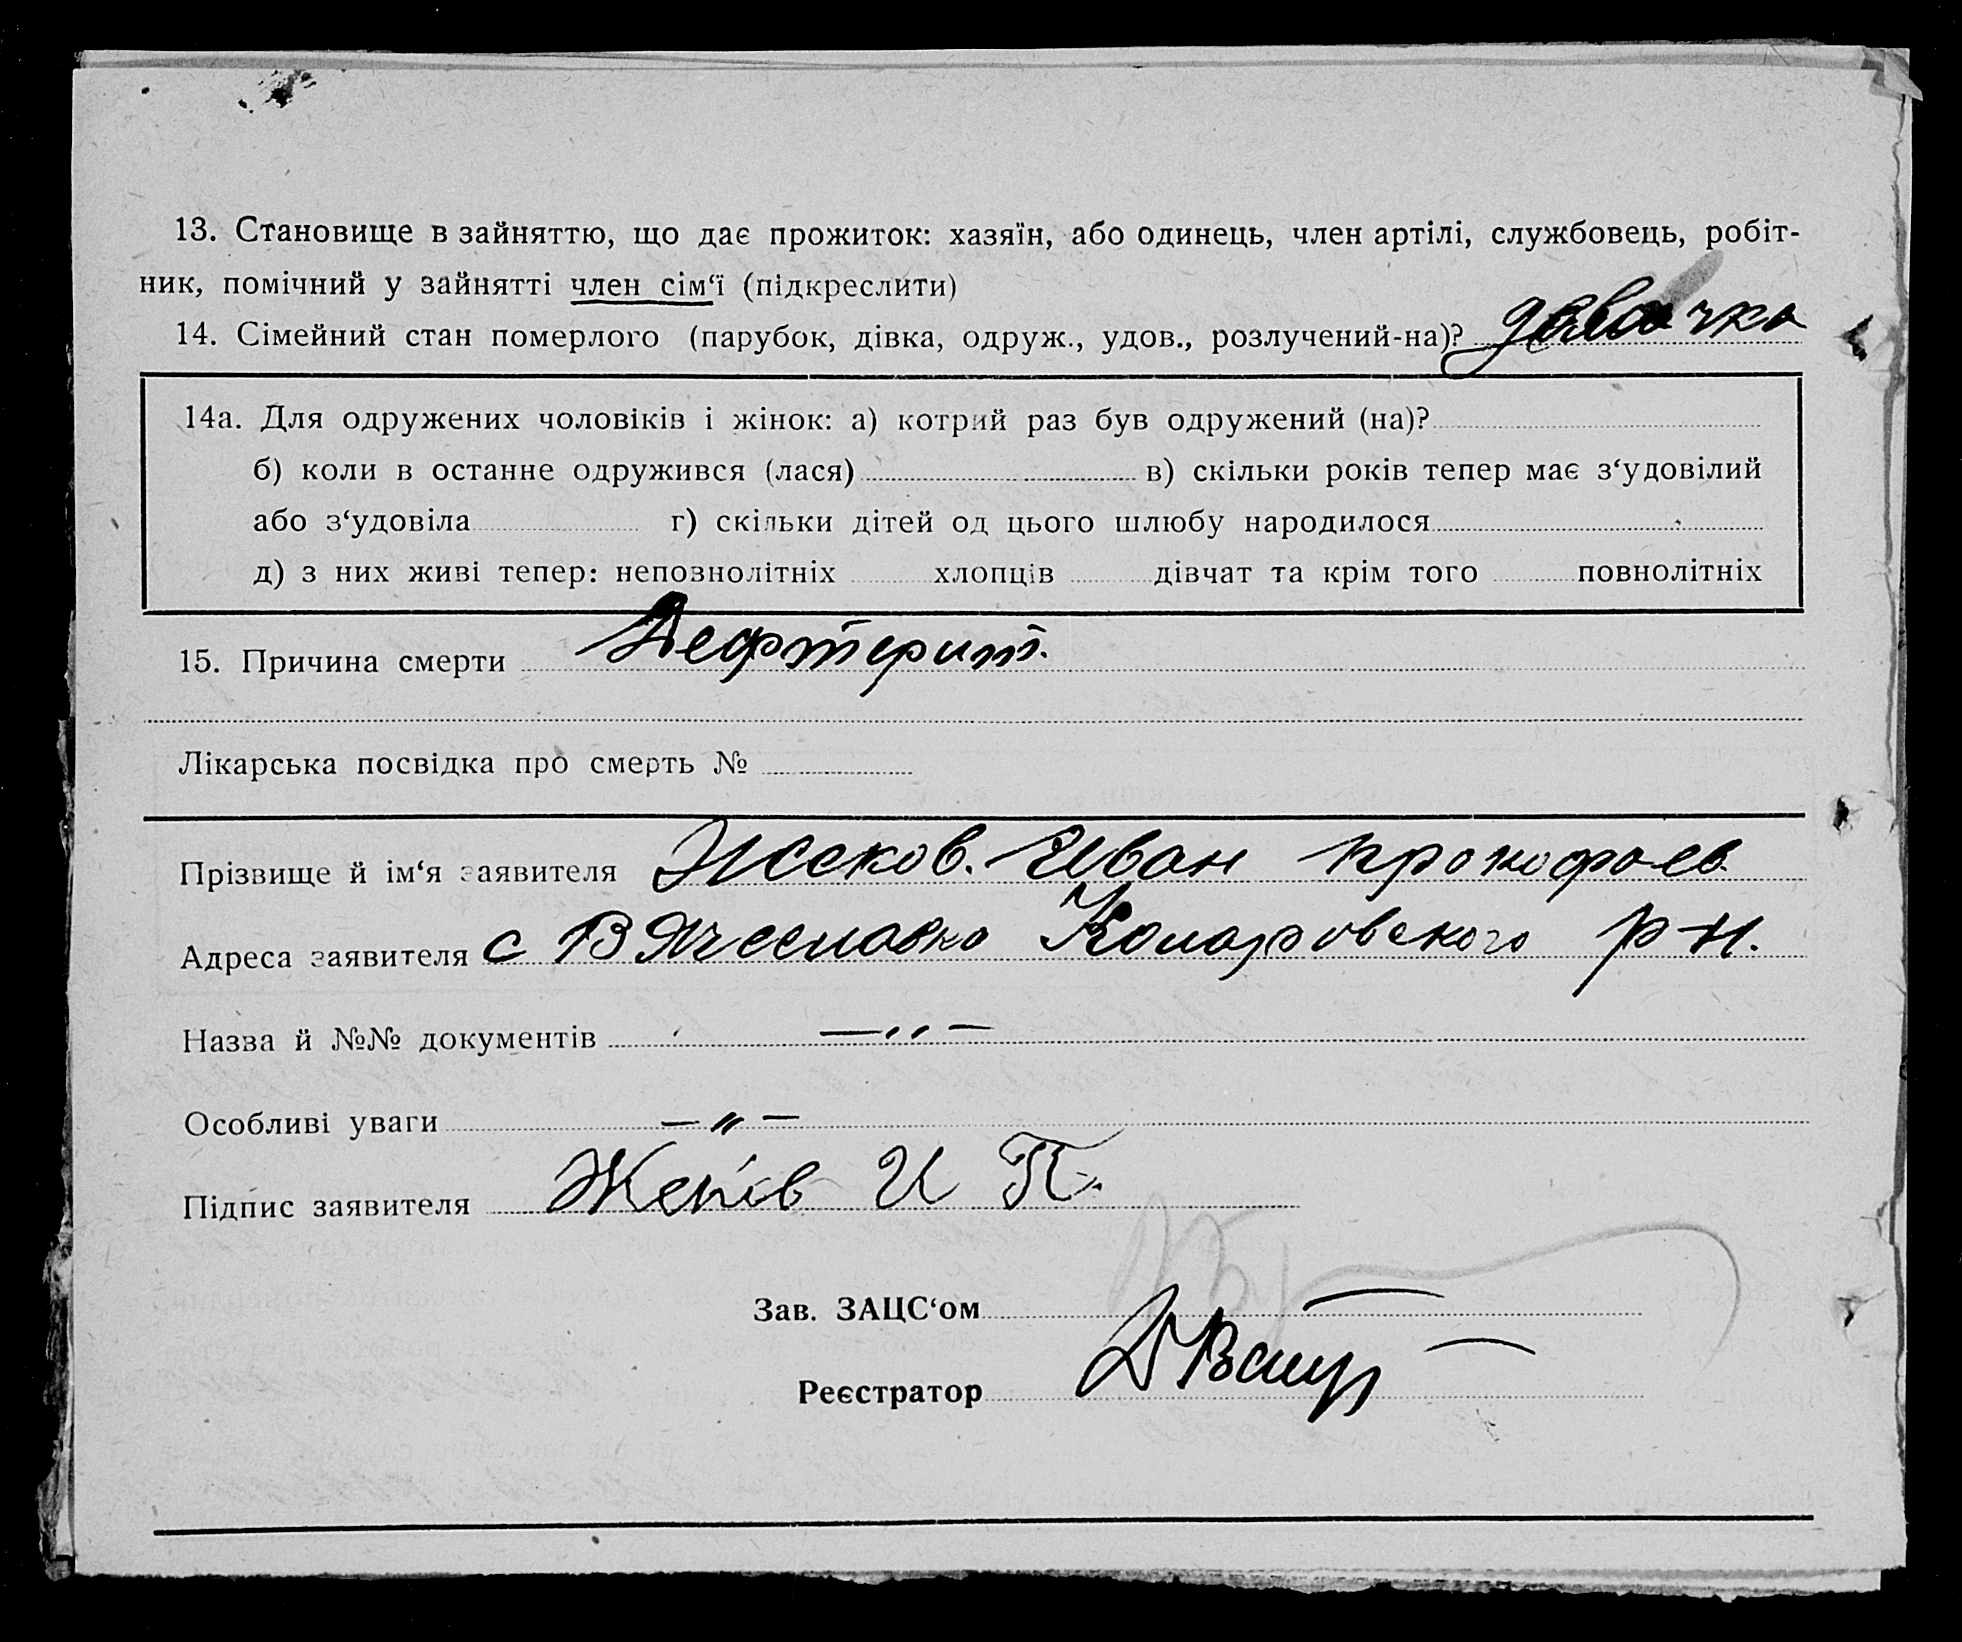 13. Становище в зайняттю, що дає прожиток: хазяїн, або одинець, член артілі, службовець, робіт-
ник, помічний у зайнятті член сім‘ї (підкреслити)
14. Сімейний стан померлого (парубок, дівка, одруж., удов., розлучений-на)?
14а. Для одружених чоловіків і жінок: а) котрий раз був одружений (на)?
б) коли в останне одружився (лася) в) скільки років тепер має з‘удовілий
або з‘удовіла г) скільки дітей од цього шлюбу народилося
д) з них живі тепер: непознолітніх хлопців дівчат та крім того повнолітніх
15. Причина смерти Дефтерит.
Лікарська посвідка про смерть №
Прізвище й ім‘я заявителя Жеков. Иван Прокофьев.
Адреса заявителя с Вячеславка Коларовского р-н.
Назва й №№ документів —„—
Особливі уваги —„—
Підпис заявителя Жеков И П.
Зав. ЗАЦС‘ом
Реєстратор